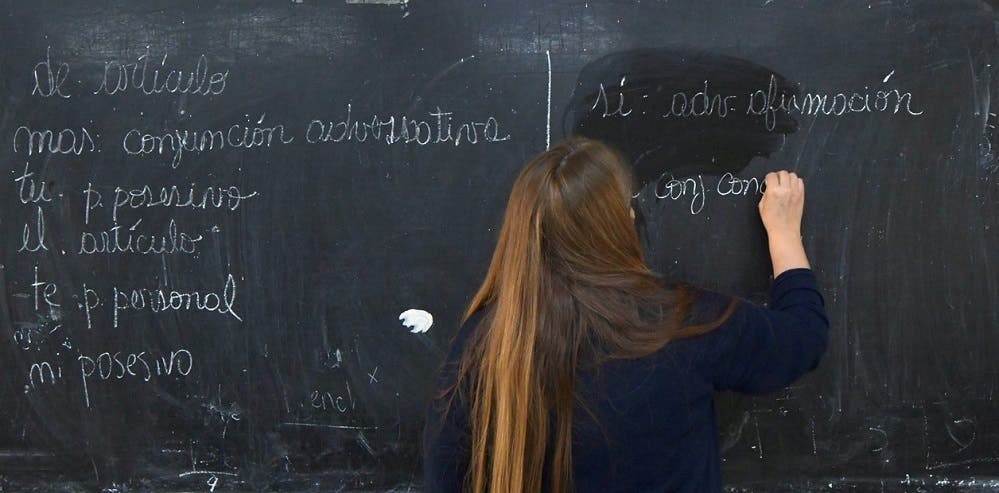 de. artículo
mas: conjunción adversativa
tu. p. posesivo
el. artículo
te. p. personal
mi posesivo
encl
9
sí: adv. afirmación
conj. conc